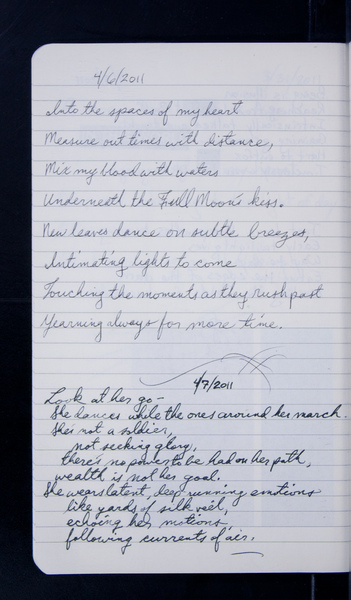 4/6/2011
Into the spaces of my heart
Measure out times with distance,
Mix my blood with waters
Underneath the Full Moon's kiss.
New leaves dance on subtle breezes,
Intimating lights to come
Touching the moments as they rush past
Yearning always for more time.
4/7/2011
Look at her go –
She dances while the ones around her march.
She's not a soldier,
not seeking glory,
there's no power to be had on her path,
wealth is not her goal.
She wears latent, deep running emotions
like yards of silk veil,
echoing her motions,
following currents of air.